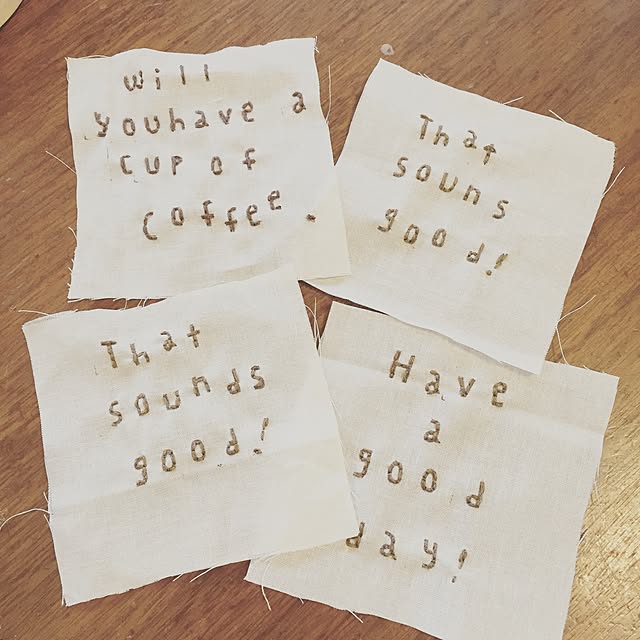 will
youhave a
cup of
coffee.
That
souns
good!
That
sounds
good!
Have
a
good
day!